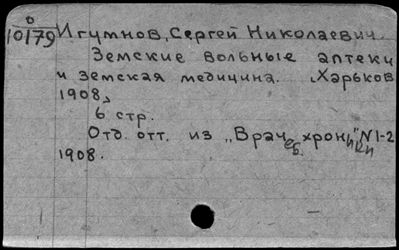 0
10179 Игумнов, Сергей Николаевич.
Земские вольные аптеки
и земская медицина. Харьков
1908,
6 стр.
Отд. отт. из „Врачеб. хроники" N 1-2
1908.